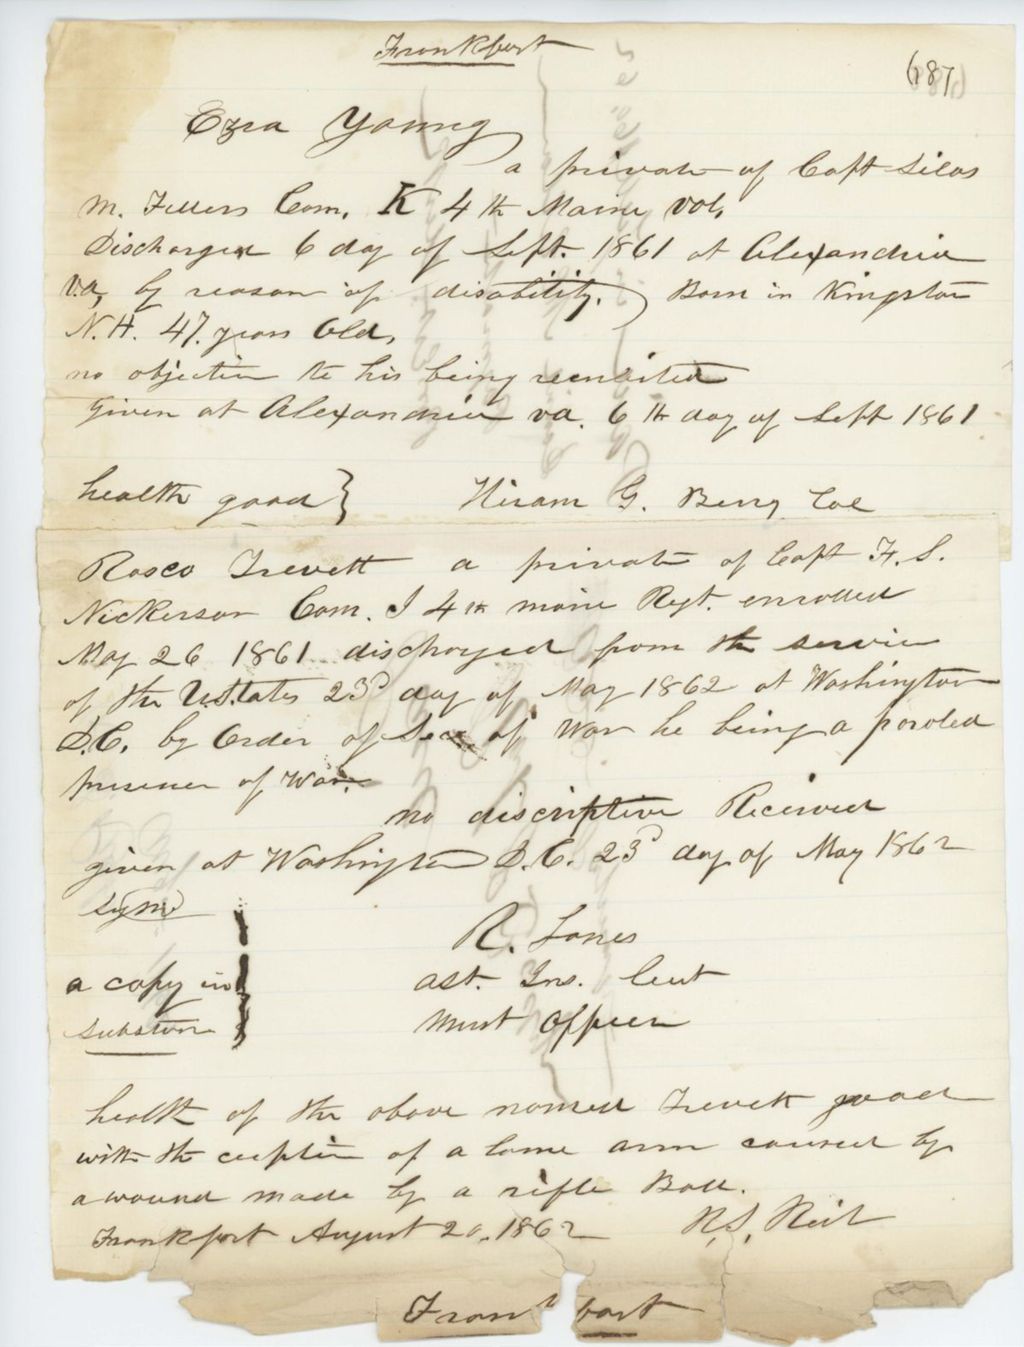 Frankfort
(187)
Ezra Young
a private of Capt Silas
M. Fullers Com. K 4th Maine Vol,
Discharged 6 day of Sept. 1861 at Alexandria
Va, by reason of disability. Born in Kingston
N.H. 47. years Old,
no objection to his being reenlisted
Given at Alexandria Va. 6th day of Sept 1861
health good } Hiram G. Berry Col
Rosco Trevett a private of Capt F. S.
Nickerson Com. I 4th Maine Regt. enrolled
May 26 1861 discharged from the service
of the U.States 23d day of May 1862 at Washington
D.C. by Order of Sec of War he being a paroled
prisener of War.
no discriptive Received
given at Washington D.C. 23d day of May 1862
a copy in R. Jones
substance ast. Ins.
Must Officer
health of the above named Trevett good
with the ception of a lame arm caused by
a wound made by a rifle Ball.
Frankfort August 20, 1862
Frankfort